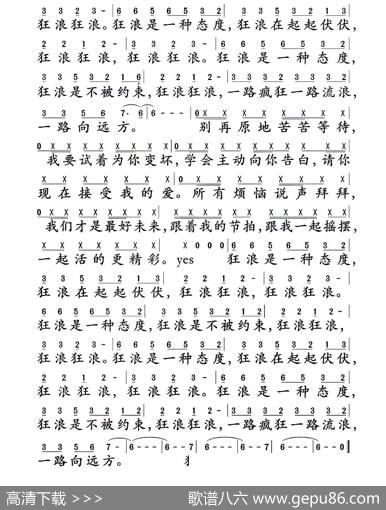 3 3 2 3 - | 6 6 5 6 5 3 2 | 3 3 5 3 2 1 3 |
狂浪狂浪。狂浪是一种态度,狂浪在起起伏伏,
2 2 1 2 - | 3 3 2 3 - | 6 6 5 6 5 3 2 |
狂浪狂浪, 狂浪狂浪。狂浪是一种态度,
3 3 5 3 2 1 6 | 2 2 1 2 - | 3 3 2 3 3 3 2 3 |
狂浪是不被约束,狂浪狂浪,一路疯狂一路流浪,
3 3 5 6 7· 6 | 6 - - - | 0 X X X X X X X |
一路向远方。 别再原地苦苦等待,
0 X X X X X X X | 0 X X X X X X X | X X X X
我要试着为你变坏,学会主动向你告白,请你
X X X X X X | X X X X X X X X |
现在接受我的爱。所有烦恼说声拜拜,
0 X X X X X X X X | X X X X X X X | X X X X X X
我们才是最好未来,跟着我的节拍,跟我一起摇摆,
X X X X X X X | X 0 0 0 | 6 6 5 6 5 3 2 |
一起活的更精彩。yes 狂浪是一种态度,
3 3 5 3 2 1 3 | 2 2 1 2 - | 3 3 2 3 - |
狂浪在起起伏伏, 狂浪狂浪, 狂浪狂浪。
6 6 5 6 5 3 2 | 3 3 5 3 2 1 2 | 2 2 1 2 - |
狂浪是一种态度,狂浪是不被约束,狂浪狂浪,
3 3 2 3 - | 6 6 5 6 5 3 2 | 3 3 5 3 2 1 3 |
狂浪狂浪。狂浪是一种态度,狂浪在起起伏伏,
2 2 1 2 - | 3 3 2 3 - | 6 6 5 6 5 3 2 |
狂浪狂浪, 狂浪狂浪。狂浪是一种态度,
3 3 5 3 2 1 2 | 2 2 1 2 - | 3 3 2 3 3 3 2 3 |
狂浪是不被约束,狂浪狂浪,一路疯狂一路流浪,
3 3 5 6 7 - | 6 - - - | 6 - - 7 | 6 - - 7 | 6 - - - | 6 - - 0 ‖
一路向远方。
高清下载 >>> 歌谱八六 www.gepu86.com